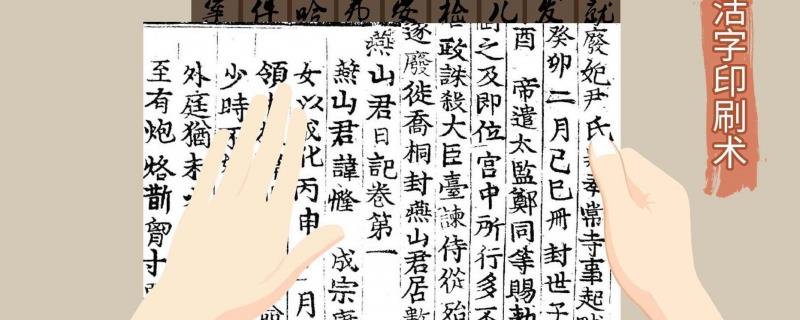 活字印刷术
廢妃尹氏 奉常寺事起
癸卯二月己巳冊封世子
酉 帝遣太監鄭同等賜勅
之及即位宮中所行多不
政誅殺大臣臺諫侍從殆
遂廢徙喬桐封燕山君居數
燕山君日記卷第一
燕山君諱㦕 成宗康
女以成化丙申 月
領
少時
外庭猶未
至有炮烙斮胷寸